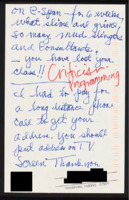 on C-Span - for 6 weeks,
what slime and grime,
so many mud slingers
and Consultants.
- you have lost your
class!!
Criticism
Programming
I had to pay for
a long distance phone
call to get your
address. You should
put address on TV
Screen Thank you